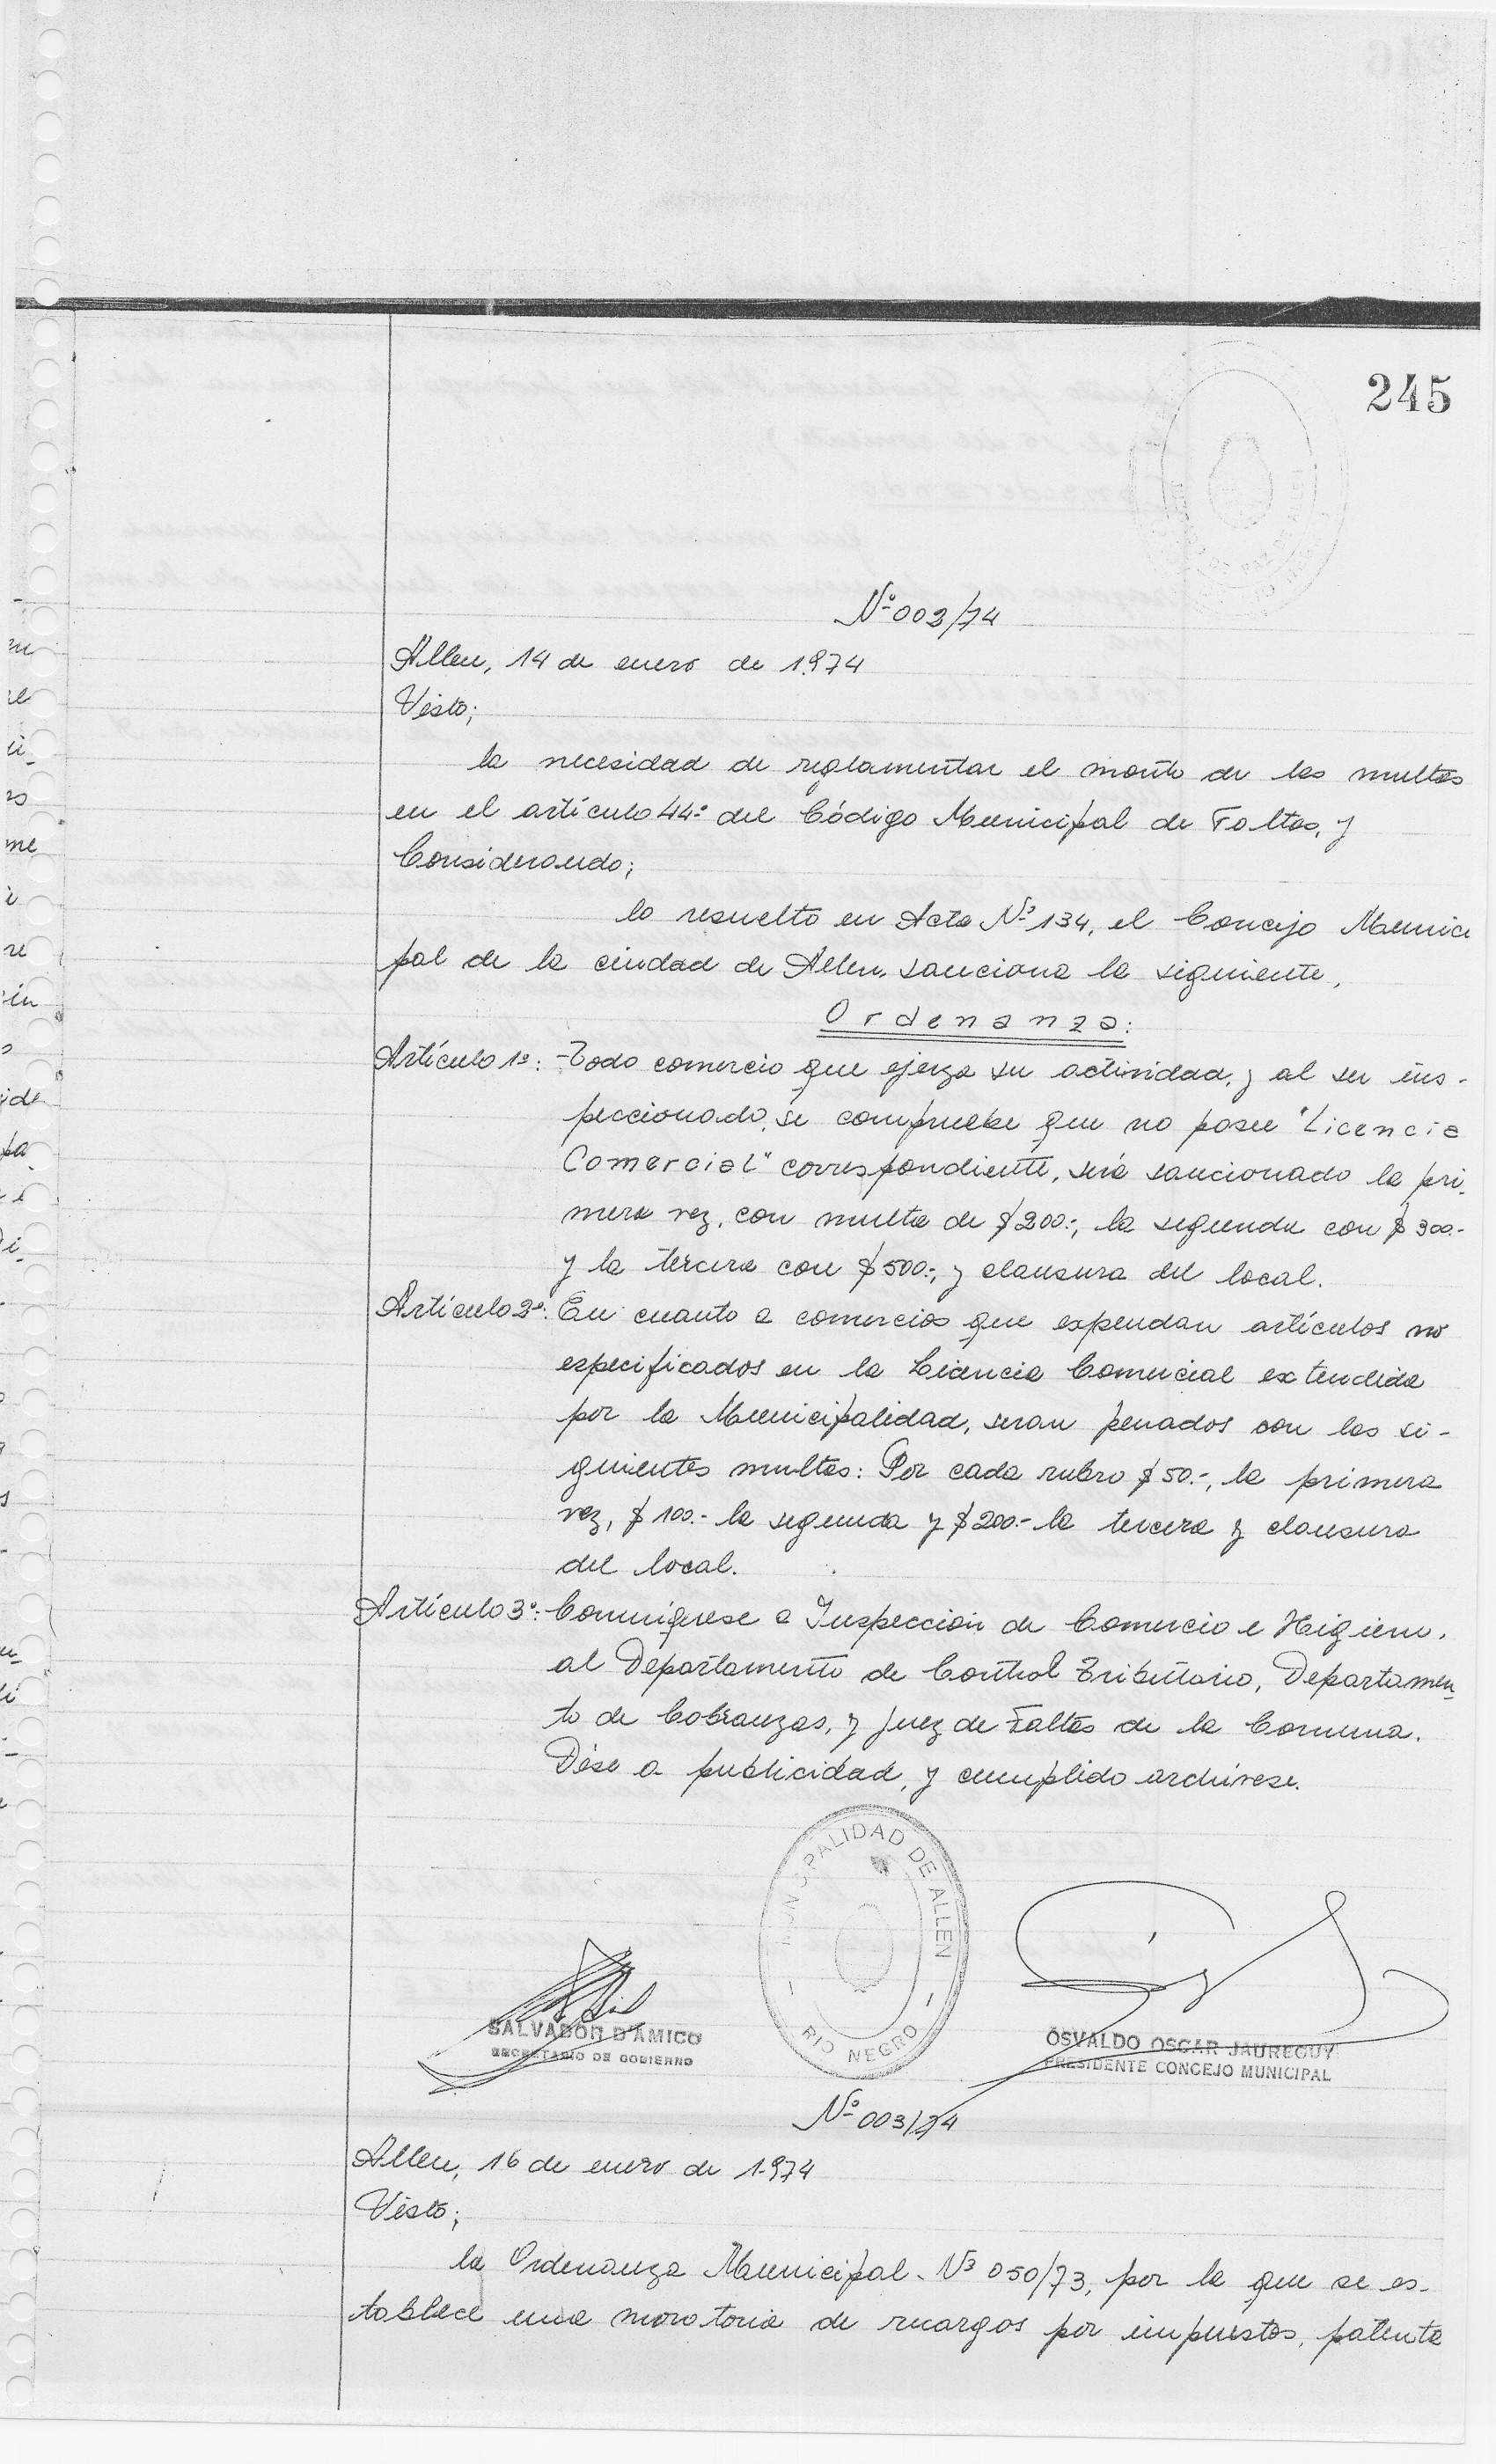 245
Nº 002/74
Allen, 14 de enero de 1.974
Visto;
la necesidad de reglamentar el monto de las multas
en el artículo 44º del Código Municipal de Faltas, y
Considerando;
lo resuelto en Acta Nº 134, el Concejo Munici
pal de la ciudad de Allen sanciona la siguiente,
Ordenanza:
Artículo 1º: Todo comercio que ejerza su actividad, y al ser ins-
peccionado, se compruebe que no posee "Licencia
Comercial" correspondiente, será sancionado la pri-
mera vez, con multa de $ 200.-, la segunda con $ 300.-
y la tercera con $ 500.-, y clausura del local.
Artículo 2º: En cuanto a comercios que expendan artículos no
especificados en la Licencia Comercial extendida
por la Municipalidad, seran penados con las si-
guientes multas: Por cada rubro $ 50.-, la primera
vez, $ 100.- la segunda y $ 200.- la tercera y clausura
del local.
Artículo 3º: Comuníquese a Inspección de Comercio e Higiene,
al Departamento de Control Tributario, Departamen-
to de Cobranzas, y Juez de Faltas de la Comuna.
Dése a publicidad, y cumplido archívese.
MUNICIPALIDAD DE ALLEN
RIO NEGRO
SALVADOR D'AMICO
SECRETARIO DE GOBIERNO
OSVALDO OSCAR JAUREGUY
PRESIDENTE CONCEJO MUNICIPAL
Nº 003/74
Allen, 16 de enero de 1.974
Visto;
la Ordenanza Municipal Nº 050/73, por la que se es-
tablece una moratoria de recargos por impuestos, patente